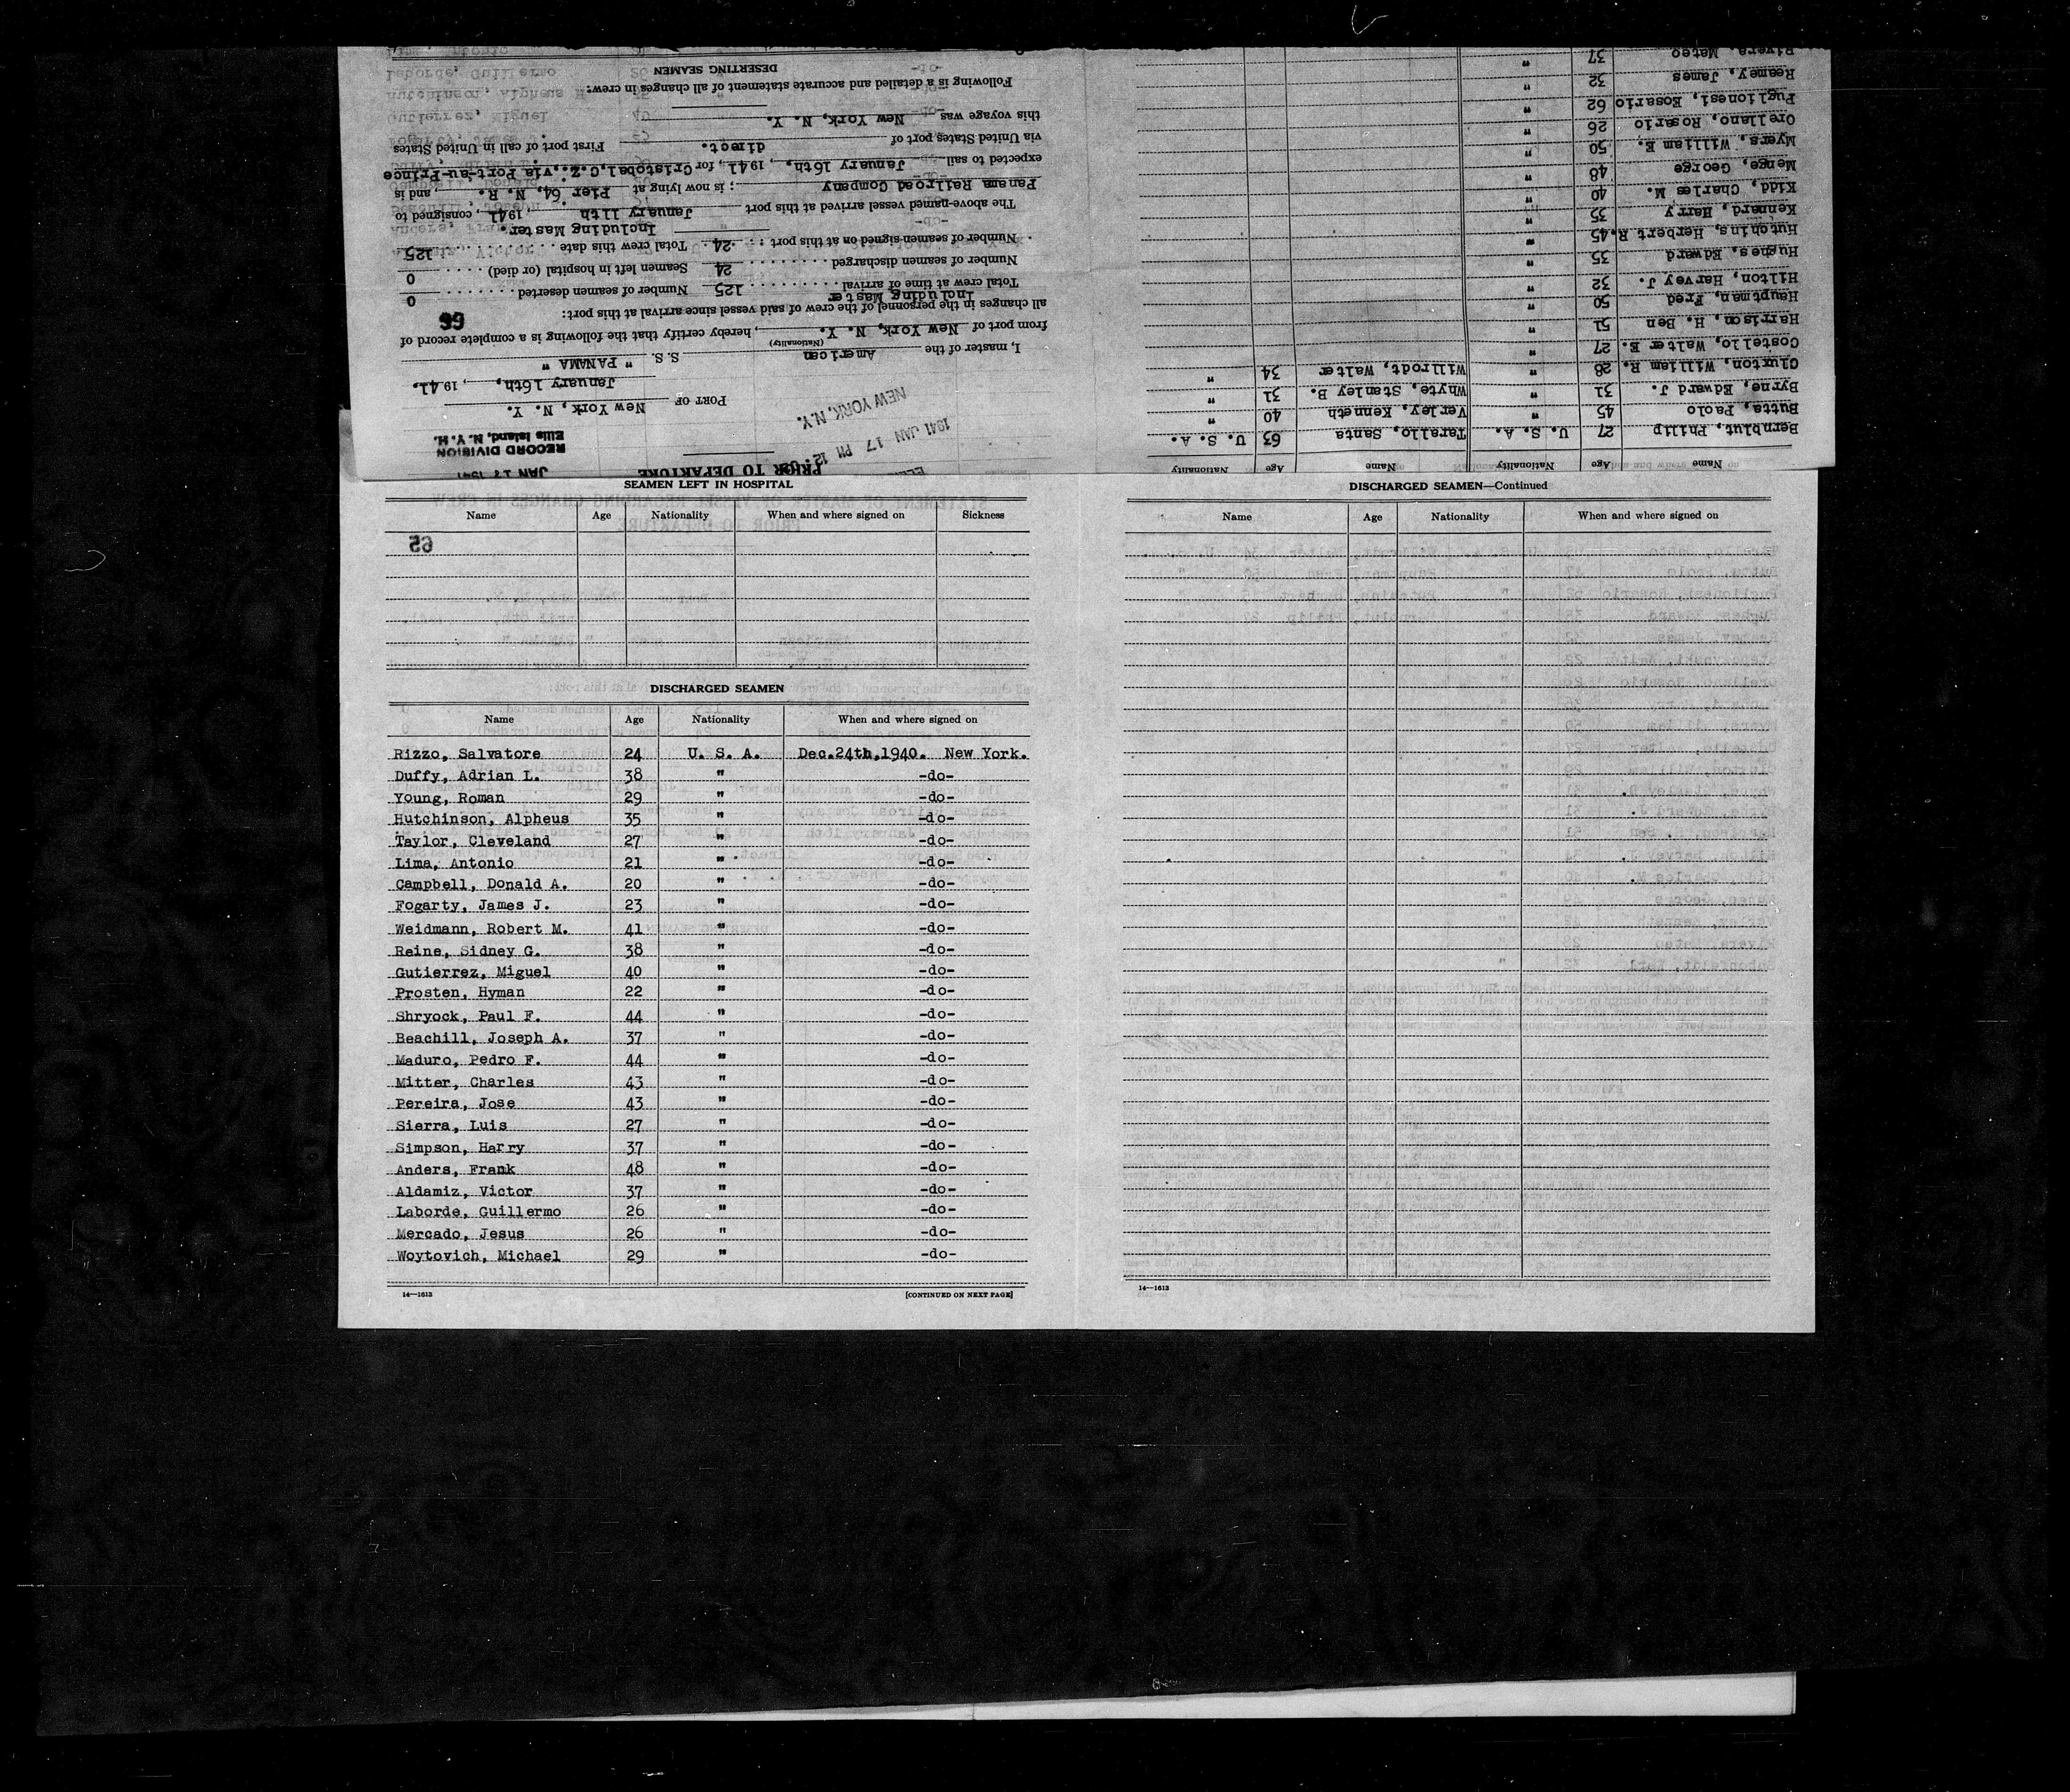 PRIOR TO DEPARTURE
JAN 17 1941
RECORD DIVISION
Ellis Island, N. Y. H.
1941 JAN 17 PM 12:
NEW YORK, N.Y.
PORT OF New York, N. Y.
January 16th, , 1941.
I, master of the American S.S. " PANAMA "
(Nationality)
from port of New York, N. Y. , hereby certify that the following is a complete record of
all changes in the personnel of the crew of said vessel since arrival at this port:
66
Including Master
Total crew at time of arrival 125 Number of seamen deserted 0
Number of seamen discharged 24 Seamen left in hospital (or died) 0
Number of seamen signed on at this port : 24 Total crew this date 125
Including Master.
The above-named vessel arrived at this port January 11th , 1941, consigned to
Panama Railroad Company ; is now lying at Pier 64, N. R. , and is
expected to sail January 16th, , 1941, for Cristobal,C.Z., via Port-au-Prince
via United States port of direct. First port of call in United States
this voyage was New York, N. Y.
Following is a detailed and accurate statement of all changes in crew:
DESERTING SEAMEN
Name Age Nationality Name Age Nationality
Bernblut, Philip 27 U. S. A. Tarallo, Santa 63 U. S. A.
Butta, Paolo 45 " Verley, Kenneth 40 "
Byrne, Edward J. 31 " Whyte, Stanley B. 31 "
Cluxton, William R. 28 " Willrodt, Walter 34 "
Costello, Walter E. 27 "
Harrison, H. Ben 51 "
Hauptman, Fred 50 "
Hilton, Harvey J. 32 "
Hughes, Edward 35 "
Hutchins, Herbert R. 45 "
Kennard, Harry 35 "
Kidd, Charles M. 40 "
Menge, George 48 "
Myers, William E. 50 "
Orellano, Rosario 26 "
Puglionesi, Rosario 62 "
Reamey, James 32 "
Rivera, Mateo 37 "
SEAMEN LEFT IN HOSPITAL
Name Age Nationality When and where signed on Sickness
65
DISCHARGED SEAMEN
Name Age Nationality When and where signed on
Rizzo, Salvatore 24 U. S. A. Dec.24th,1940. New York.
Duffy, Adrian L. 38 " -do-
Young, Roman 29 " -do-
Hutchinson, Alpheus 35 " -do-
Taylor, Cleveland 27 " -do-
Lima, Antonio 21 " -do-
Campbell, Donald A. 20 " -do-
Fogarty, James J. 23 " -do-
Weidmann, Robert M. 41 " -do-
Reine, Sidney G. 38 " -do-
Gutierrez, Miguel 40 " -do-
Prosten, Hyman 22 " -do-
Shryock, Paul F. 44 " -do-
Beachill, Joseph A. 37 " -do-
Maduro, Pedro F. 44 " -do-
Mitter, Charles 43 " -do-
Pereira, Jose 43 " -do-
Sierra, Luis 27 " -do-
Simpson, Harry 37 " -do-
Anders, Frank 48 " -do-
Aldamiz, Victor 37 " -do-
Laborde, Guillermo 26 " -do-
Mercado, Jesus 26 " -do-
Woytovich, Michael 29 " -do-
14—1613 [CONTINUED ON NEXT PAGE]
DISCHARGED SEAMEN—Continued
Name Age Nationality When and where signed on
14—1613